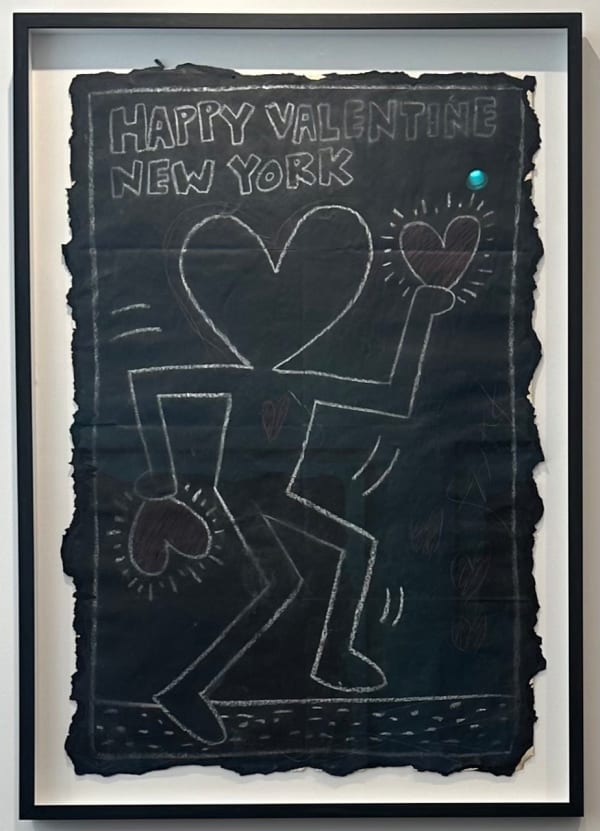 HAPPY VALENTINE
NEW YORK